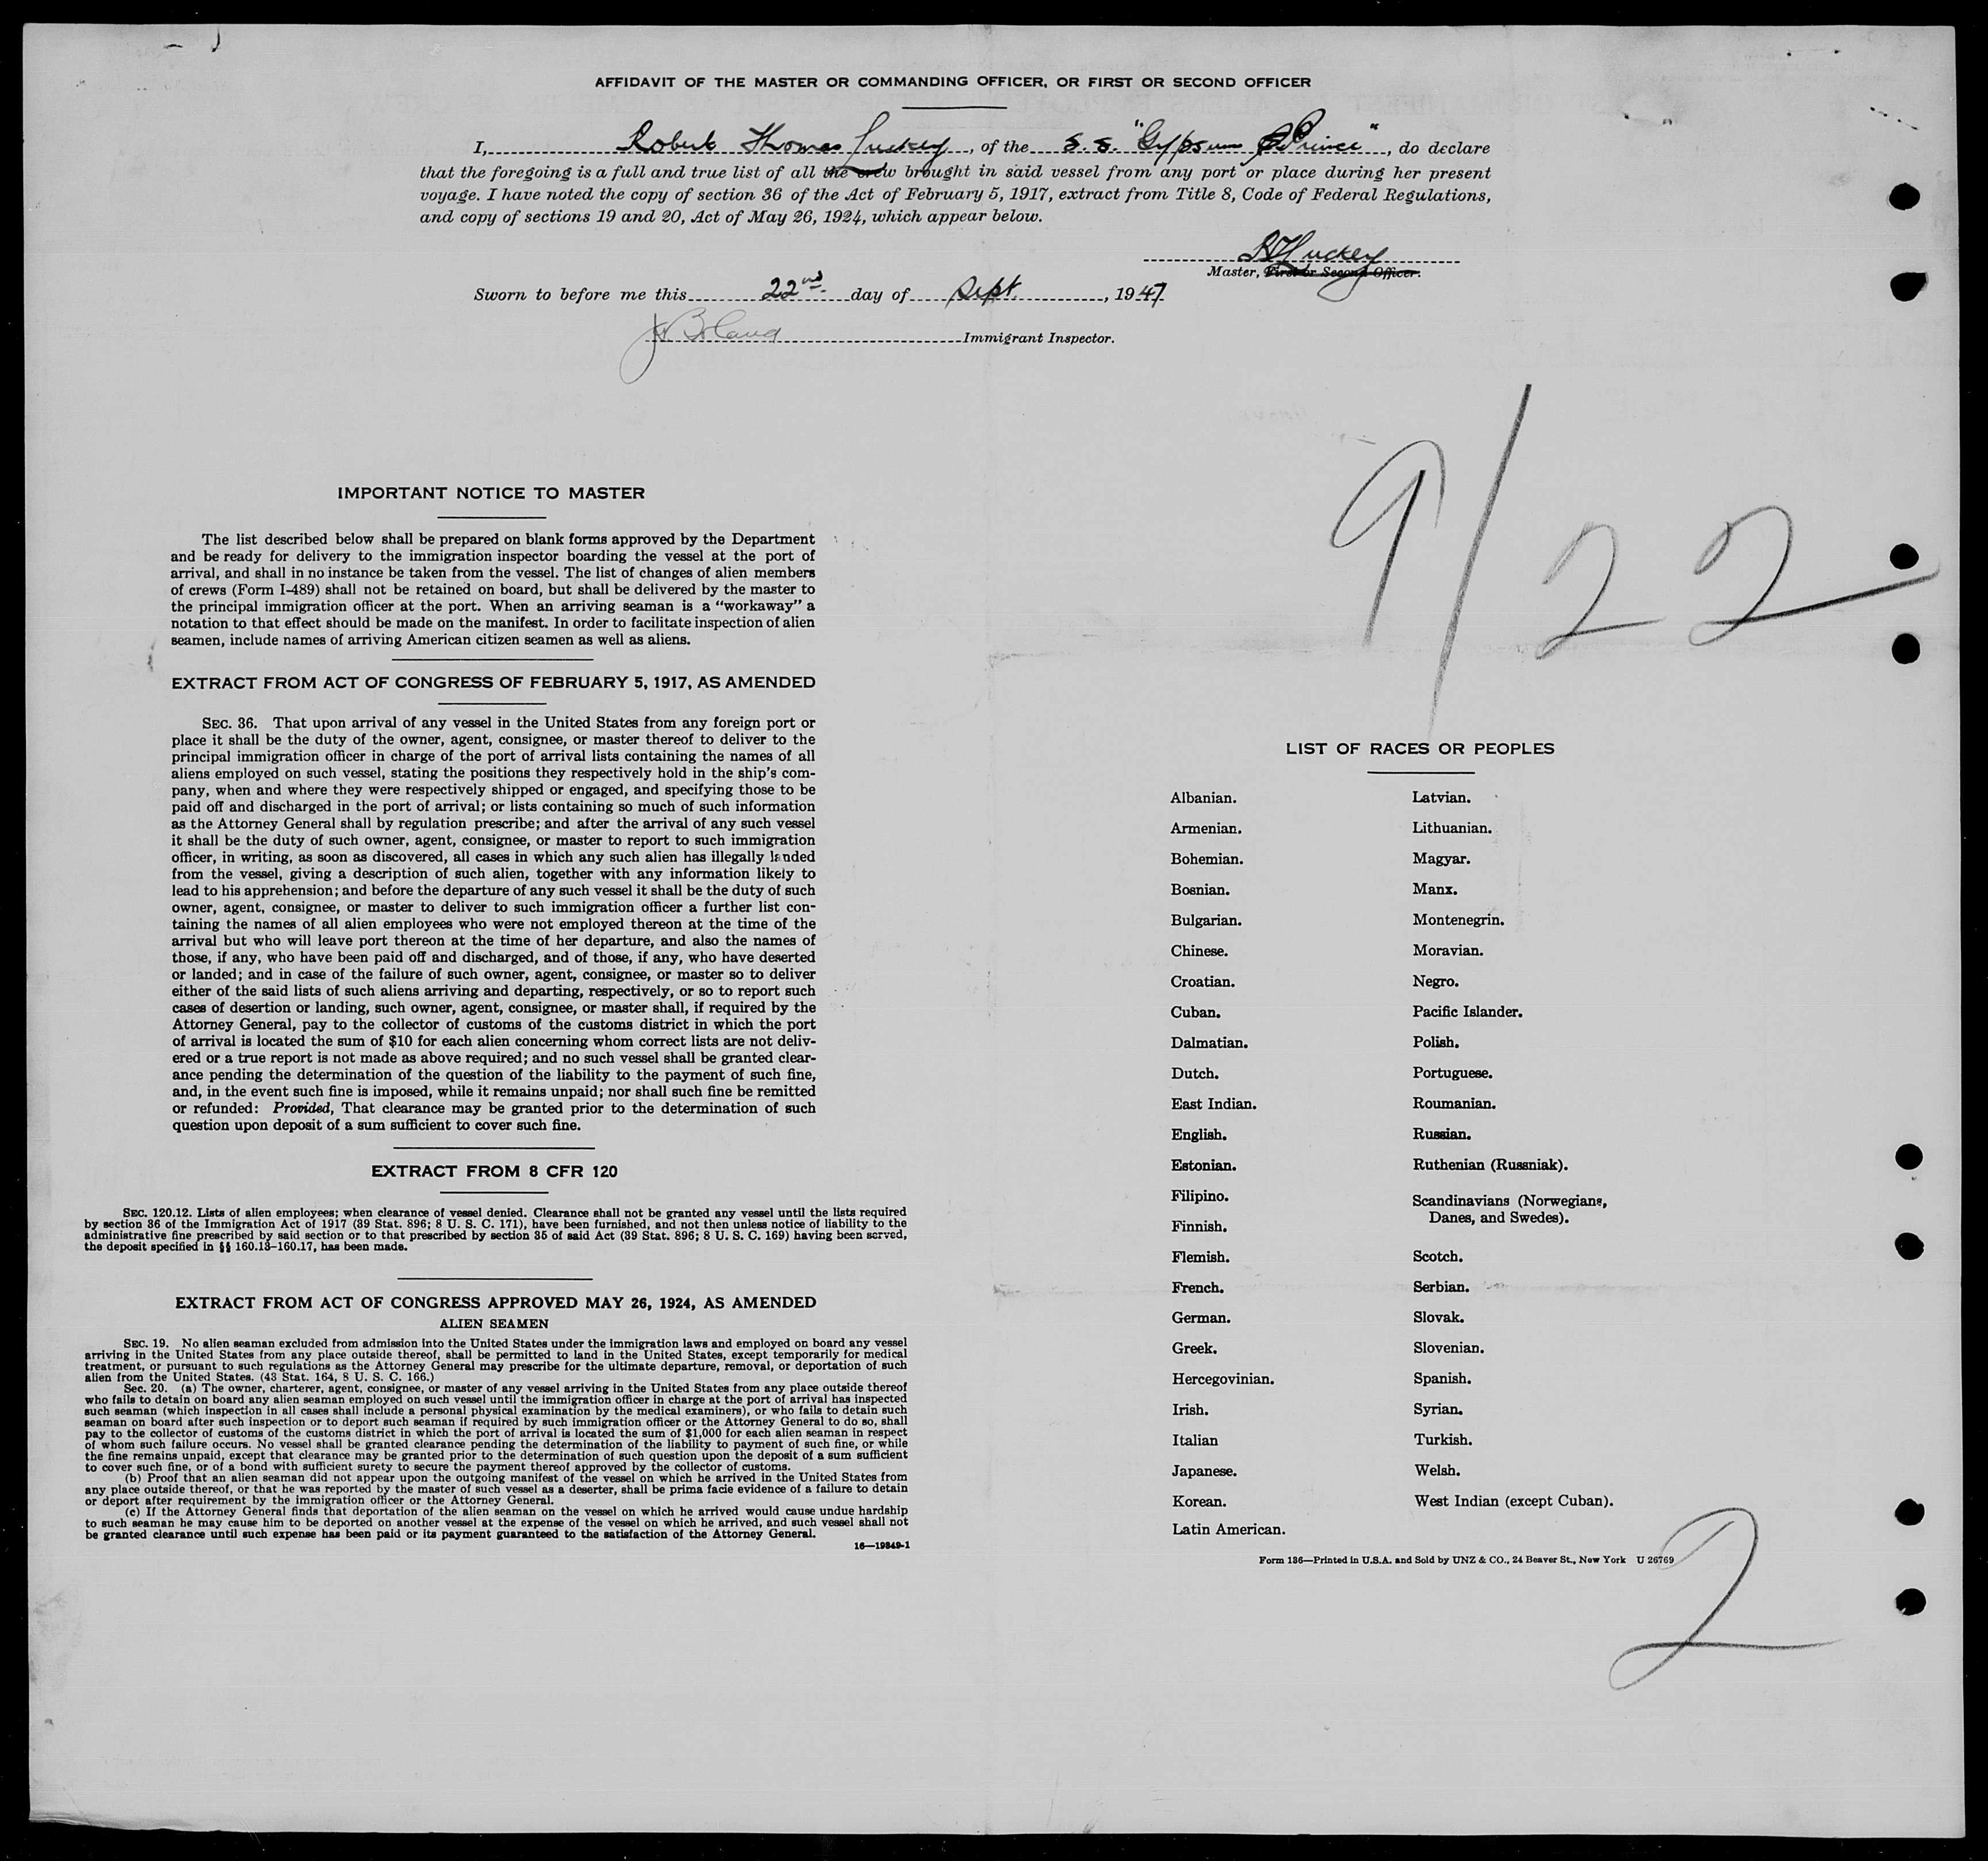 AFFIDAVIT OF THE MASTER OR COMMANDING OFFICER, OR FIRST OR SECOND OFFICER
I, Robert Thomas , of the S.S. "Gypsum Prince", do declare
that the foregoing is a full and true list of all the crew brought in said vessel from any port or place during her present
voyage. I have noted the copy of section 36 of the Act of February 5, 1917, extract from Title 8, Code of Federal Regulations,
and copy of sections 19 and 20, Act of May 26, 1924, which appear below.
Master, First or Second Officer.
Sworn to before me this 22nd day of Sept., 1947
Immigrant Inspector.
9/22
IMPORTANT NOTICE TO MASTER
The list described below shall be prepared on blank forms approved by the Department
and be ready for delivery to the immigration inspector boarding the vessel at the port of
arrival, and shall in no instance be taken from the vessel. The list of changes of alien members
of crews (Form I-489) shall not be retained on board, but shall be delivered by the master to
the principal immigration officer at the port. When an arriving seaman is a "workaway" a
notation to that effect should be made on the manifest. In order to facilitate inspection of alien
seamen, include names of arriving American citizen seamen as well as aliens.
EXTRACT FROM ACT OF CONGRESS OF FEBRUARY 5, 1917, AS AMENDED
SEC. 36. That upon arrival of any vessel in the United States from any foreign port or
place it shall be the duty of the owner, agent, consignee, or master thereof to deliver to the
principal immigration officer in charge of the port of arrival lists containing the names of all
aliens employed on such vessel, stating the positions they respectively hold in the ship's com-
pany, when and where they were respectively shipped or engaged, and specifying those to be
paid off and discharged in the port of arrival; or lists containing so much of such information
as the Attorney General shall by regulation prescribe; and after the arrival of any such vessel
it shall be the duty of such owner, agent, consignee, or master to report to such immigration
officer, in writing, as soon as discovered, all cases in which any such alien has illegally landed
from the vessel, giving a description of such alien, together with any information likely to
lead to his apprehension; and before the departure of any such vessel it shall be the duty of such
owner, agent, consignee, or master to deliver to such immigration officer a further list con-
taining the names of all alien employees who were not employed thereon at the time of the
arrival but who will leave port thereon at the time of her departure, and also the names of
those, if any, who have been paid off and discharged, and of those, if any, who have deserted
or landed; and in case of the failure of such owner, agent, consignee, or master so to deliver
either of the said lists of such aliens arriving and departing, respectively, or so to report such
cases of desertion or landing, such owner, agent, consignee, or master shall, if required by the
Attorney General, pay to the collector of customs of the customs district in which the port
of arrival is located the sum of $10 for each alien concerning whom correct lists are not deliv-
ered or a true report is not made as above required; and no such vessel shall be granted clear-
ance pending the determination of the question of the liability to the payment of such fine,
and, in the event such fine is imposed, while it remains unpaid; nor shall such fine be remitted
or refunded: Provided, That clearance may be granted prior to the determination of such
question upon deposit of a sum sufficient to cover such fine.
EXTRACT FROM 8 CFR 120
SEC. 120.12. Lists of alien employees; when clearance of vessel denied. Clearance shall not be granted any vessel until the lists required
by section 36 of the Immigration Act of 1917 (39 Stat. 896; 8 U. S. C. 171), have been furnished, and not then unless notice of liability to the
administrative fine prescribed by said section or to that prescribed by section 35 of said Act (39 Stat. 896; 8 U. S. C. 169) having been served,
the deposit specified in §§ 160.13-160.17, has been made.
EXTRACT FROM ACT OF CONGRESS APPROVED MAY 26, 1924, AS AMENDED
ALIEN SEAMEN
SEC. 19. No alien seaman excluded from admission into the United States under the immigration laws and employed on board any vessel
arriving in the United States from any place outside thereof, shall be permitted to land in the United States, except temporarily for medical
treatment, or pursuant to such regulations as the Attorney General may prescribe for the ultimate departure, removal, or deportation of such
alien from the United States. (43 Stat. 164, 8 U. S. C. 166.)
Sec. 20. (a) The owner, charterer, agent, consignee, or master of any vessel arriving in the United States from any place outside thereof
who fails to detain on board any alien seaman employed on such vessel until the immigration officer in charge at the port of arrival has inspected
such seaman (which inspection in all cases shall include a personal physical examination by the medical examiners), or who fails to detain such
seaman on board after such inspection or to deport such seaman if required by such immigration officer or the Attorney General to do so, shall
pay to the collector of customs of the customs district in which the port of arrival is located the sum of $1,000 for each alien seaman in respect
of whom such failure occurs. No vessel shall be granted clearance pending the determination of the liability to payment of such fine, or while
the fine remains unpaid, except that clearance may be granted prior to the determination of such question upon the deposit of a sum sufficient
to cover such fine, or of a bond with sufficient surety to secure the payment thereof approved by the collector of customs.
(b) Proof that an alien seaman did not appear upon the outgoing manifest of the vessel on which he arrived in the United States from
any place outside thereof, or that he was reported by the master of such vessel as a deserter, shall be prima facie evidence of a failure to detain
or deport after requirement by the immigration officer or the Attorney General.
(c) If the Attorney General finds that deportation of the alien seaman on the vessel on which he arrived would cause undue hardship
to such seaman he may cause him to be deported on another vessel at the expense of the vessel on which he arrived, and such vessel shall not
be granted clearance until such expense has been paid or its payment guaranteed to the satisfaction of the Attorney General.
16—19849-1
LIST OF RACES OR PEOPLES
Albanian.
Armenian.
Bohemian.
Bosnian.
Bulgarian.
Chinese.
Croatian.
Cuban.
Dalmatian.
Dutch.
East Indian.
English.
Estonian.
Filipino.
Finnish.
Flemish.
French.
German.
Greek.
Hercegovinian.
Irish.
Italian
Japanese.
Korean.
Latin American.
Latvian.
Lithuanian.
Magyar.
Manx.
Montenegrin.
Moravian.
Negro.
Pacific Islander.
Polish.
Portuguese.
Roumanian.
Russian.
Ruthenian (Russniak).
Scandinavians (Norwegians,
Danes, and Swedes).
Scotch.
Serbian.
Slovak.
Slovenian.
Spanish.
Syrian.
Turkish.
Welsh.
West Indian (except Cuban).
Form 136—Printed in U.S.A. and Sold by UNZ & CO., 24 Beaver St., New York U 26769
2